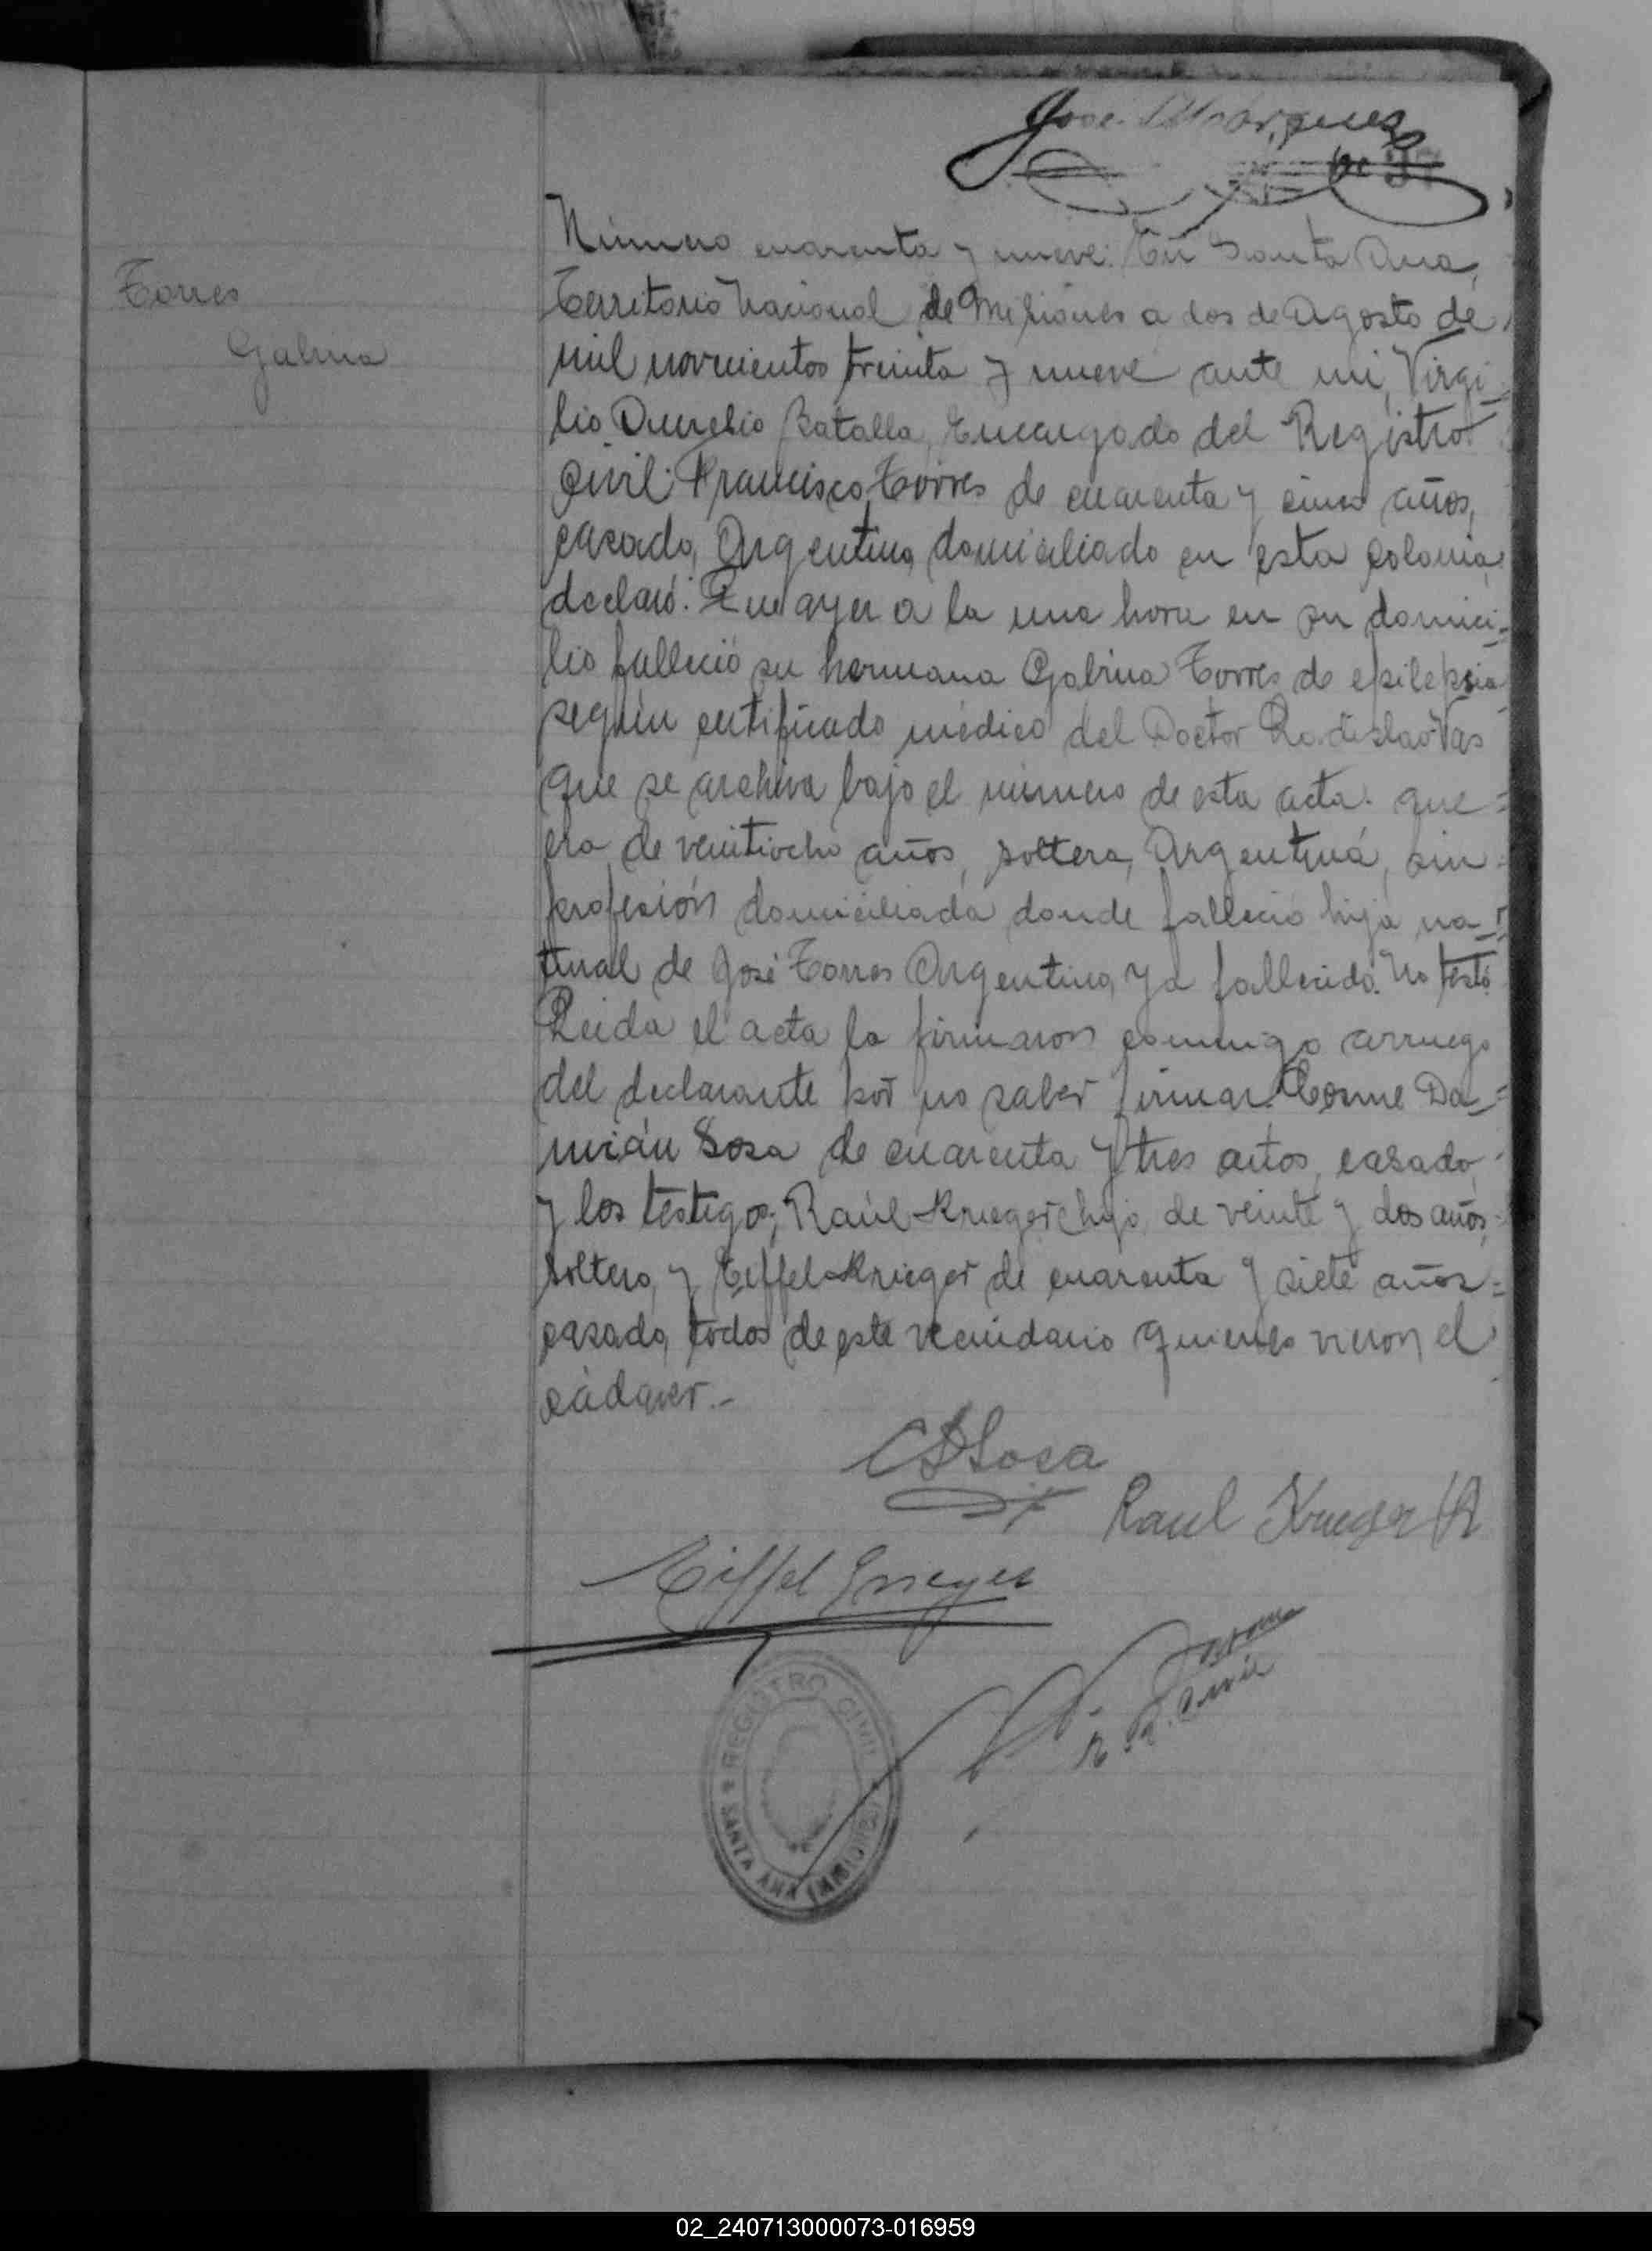 José Marquez
37
Torres
Gabina
Número cuarenta y nueve: En Santa Ana,
Territorio Nacional de Misiones a dos de Agosto de
mil novecientos treinta y nueve ante mi, Virgi-
lio Aurelio Batalla, Encargado del Registro
Civil: Francisco Torres de cuarenta y cinco años,
casado, Argentino, domiciliado en esta colonia,
declaró: Que ayer a la una hora en su domici-
lio falleció su hermana Gabina Torres de epilepsia
según certificado médico del Doctor Ladislao Vas
que se archiva bajo el número de esta acta. que =
era de veintiocho años, soltera, Argentina, sin =
profesión domiciliada donde falleció hija na-
tural de José Torres Argentino, ya fallecido. No testó.
Leida el acta la firmaron conmigo arruego
del declarante por no saber firmar. Cosme Da-
mián Sosa de cuarenta y tres años, casado,
y los testigos; Raúl Krieger hijo de veinte y dos años,
soltero, y Eiffel Krieger de cuarenta y siete años =
casado, todos de este vecindario quienes vieron el
cádaver.-
CDSosa
Raul Krieger (h
Eiffel Krieger
REGISTRO CIVIL
SANTA ANA (MISIONES)
02_240713000073-016959